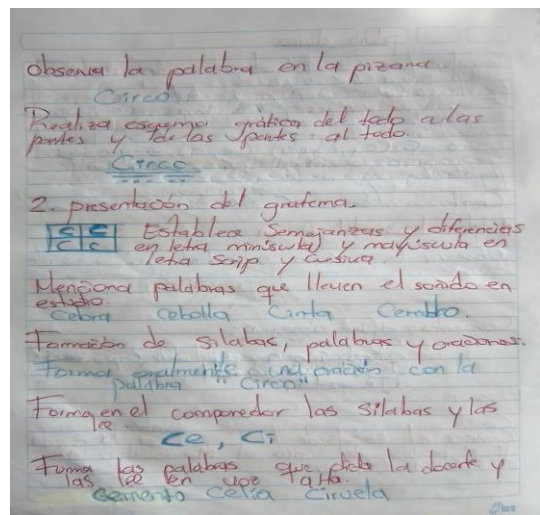 Observa la palabra en la pizarra
Circo
Realiza esquema gráfica del todo a las
partes y de las partes al todo.
Circo
2. presentación del grafema.
C C Establece Semejanzas y diferencias
c c en letra minúscula y mayúscula en
letra Scrip y cursiva.
Menciona palabras que lleven el sonido en
estudio.
Cebra cebolla Cinta Cerebro.
Formación de silabas, palabras y oraciones.
Forma oralmente una oración con la
palabra "Circo"
Forma en el componedor las silabas y las
lee.
Ce, Ci
Forma las palabras que dicta la docente y
las lee en voz alta.
Cemento Celia Ciruela